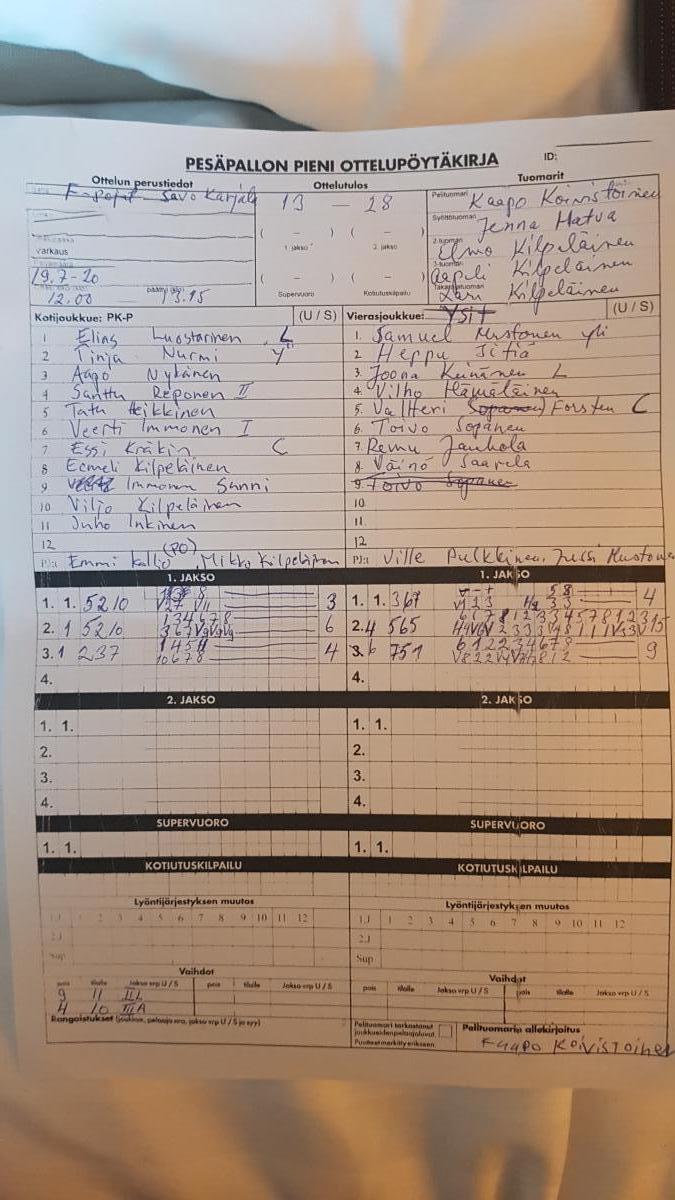 PESÄPALLON PIENI OTTELUPÖYTÄKIRJA
ID:
Ottelun perustiedot
Ottelutulos
Tuomarit
F-pojat Savo Karjala
13 – 28
Pelituomari Kaapo Koivistoinen
Syöttötuomari Jenna Hatva
( – ) ( – )
1. jakso 2. jakso
2-tuomari Elmo Kilpeläinen
varkaus
3-tuomari Aapeli Kilpeläinen
19.7-20
( – ) ( – )
Takarajatuomari Lari Kilpeläinen
12.00
13.15
Supervuoro Kotiutuskilpailu
Kotijoukkue: PK-P (U / S)
1 Elias Luostarinen L
2 Tinja Nurmi Y
3 Aapo Nykänen
4 Santtu Reponen II
5 Tatu Heikkinen
6 Veerti Immonen I
7 Essi Kräkin C
8 Eemeli Kilpeläinen
9 Immonen Sanni
10 Viljo Kilpeläinen
11 Juho Inkinen
12
(PO)
PJ:t Emmi Kallio, Mikko Kilpeläinen
Vierasjoukkue: Ysit (U / S)
1. Samuel Mustonen yli
2. Heppu Sitiä
3. Joona Keinänen L
4. Vilho Hämäläinen
5. Valtteri Sopanen Forsten C
6. Toivo Sopanen
7. Remu Janhola
8. Väinö Saarela
9. Toivo Sopanen
10.
11.
12
PJ:t Ville Pulkkinen, Jussi Mustonen
1. JAKSO
1. 1. 5210 3
2. 1 5210 6
3. 1 237 4
4.
1. JAKSO
1. 1. 367 4
2. 4 565 15
3. 6 751 9
4.
2. JAKSO
1. 1.
2.
3.
4.
2. JAKSO
1. 1.
2.
3.
4.
SUPERVUORO
1. 1.
SUPERVUORO
1. 1.
KOTIUTUSKILPAILU
KOTIUTUSKILPAILU
Lyöntijärjestyksen muutos
1.J 1 2 3 4 5 6 7 8 9 10 11 12
2.J
Sup
Lyöntijärjestyksen muutos
1.J 1 2 3 4 5 6 7 8 9 10 11 12
2.J
Sup
Vaihdot
pois tilalle Jakso vrp U / S pois tilalle Jakso vrp U / S
9 11
4 10 IIIA
Vaihdot
pois tilalle Jakso vrp U / S pois tilalle Jakso vrp U / S
Rangaistukset (joukkue, pelaaja nro, jakso vrp U / S ja syy)
Pelituomari tarkastanut
joukkueiden pelaajaluvat.
Puutteet merkitty erikseen.
Pelituomarin allekirjoitus
Kaapo Koivistoinen